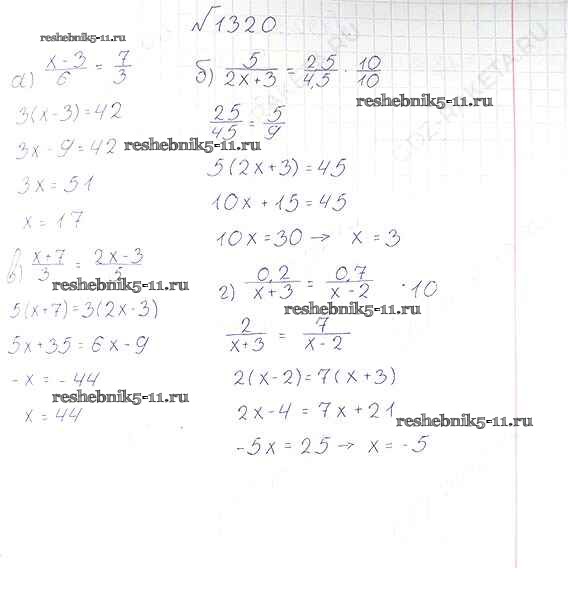 №1320
reshebnik5-11.ru
а) (x-3)/6 = 7/3
3(x-3)=42
3x-9=42 reshebnik5-11.ru
3x=51
x=17
б) 5/(2x+3) = 2,5/4,5 · 10/10
reshebnik5-11.ru
25/45 = 5/9
5(2x+3)=45
10x+15=45
10x=30 → x=3
в) (x+7)/3 = (2x-3)/5
reshebnik5-11.ru
5(x+7)=3(2x-3)
5x+35=6x-9
-x=-44
reshebnik5-11.ru
x=44
г) 0,2/(x+3) = 0,7/(x-2) ·10
reshebnik5-11.ru
2/(x+3) = 7/(x-2)
2(x-2)=7(x+3)
2x-4=7x+21
reshebnik5-11.ru
-5x=25 → x=-5